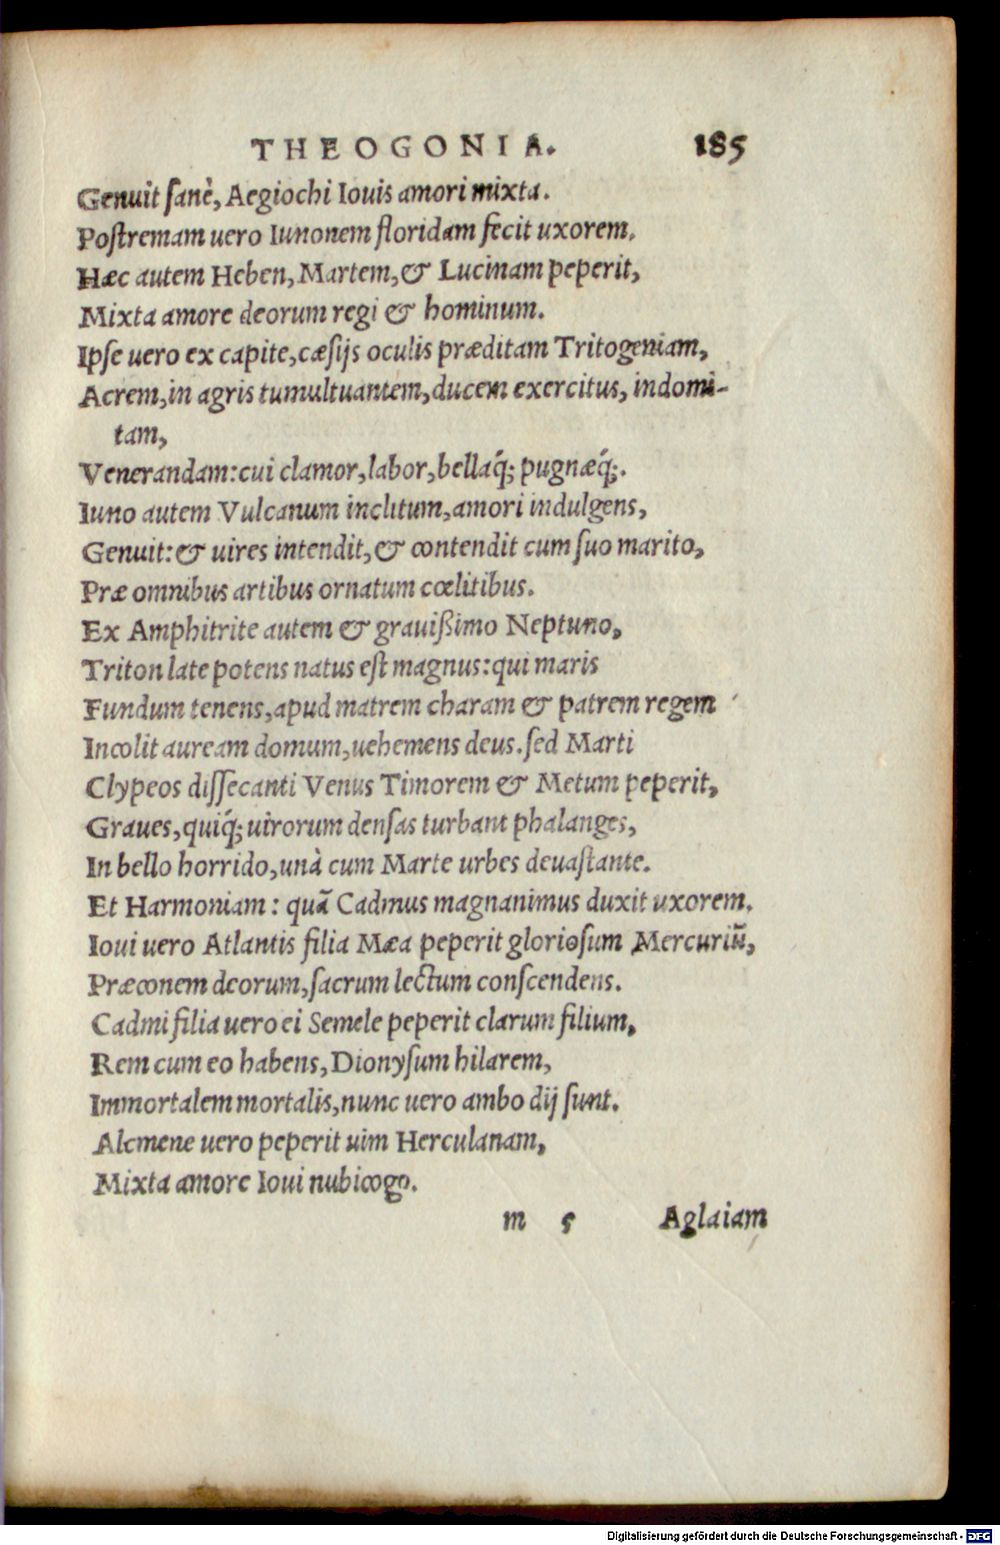 THEOGONIA. 185
Genuit ſanè, Aegiochi Iouis amori mixta.
Poſtremam uero Iunonem floridam fecit uxorem.
Hæc autem Heben, Martem, & Lucinam peperit,
Mixta amore deorum regi & hominum.
Ipſe uero ex capite, cæſijs oculis præditam Tritogeniam,
Acrem, in agris tumultuantem, ducem exercitus, indomi-
tam,
Venerandam: cui clamor, labor, bellaq́; pugnæq́;.
Iuno autem Vulcanum inclitum, amori indulgens,
Genuit: & uires intendit, & contendit cum ſuo marito,
Præ omnibus artibus ornatum cœlitibus.
Ex Amphitrite autem & grauißimo Neptuno,
Triton late potens natus eſt magnus: qui maris
Fundum tenens, apud matrem charam & patrem regem
Incolit auream domum, uehemens deus. ſed Marti
Clypeos diſſecanti Venus Timorem & Metum peperit,
Graues, quiq́; uirorum denſas turbant phalanges,
In bello horrido, unà cum Marte urbes deuaſtante.
Et Harmoniam: quã Cadmus magnanimus duxit uxorem.
Ioui uero Atlantis filia Mæa peperit glorioſum Mercuriũ,
Præconem deorum, ſacrum lectum conſcendens.
Cadmi filia uero ei Semele peperit clarum filium,
Rem cum eo habens, Dionyſum hilarem,
Immortalem mortalis, nunc uero ambo dij ſunt.
Alcmene uero peperit uim Herculanam,
Mixta amore Ioui nubicogo.
m 5 Aglaiam
Digitalisierung gefördert durch die Deutsche Forschungsgemeinschaft - DFG